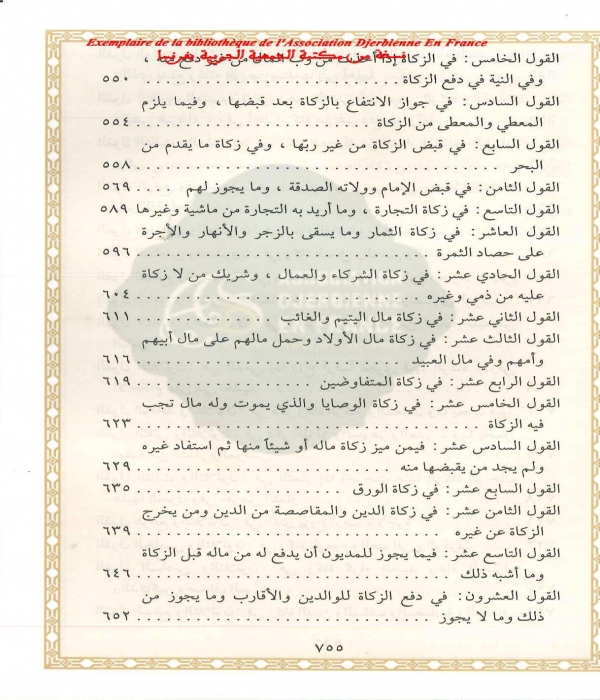 Exemplaire de la bibliothèque de l'Association Djerbienne En France
نسخة من مكتبة الجمعية الجربية بفرنسا
القول الخامس: في الزكاة إذا من رب المال من غير ،
وفي النية في دفع الزكاة . . . . . . . . . . . . . . . . . . . . . . . ٥٥٠
القول السادس: في جواز الانتفاع بالزكاة بعد قبضها ، وفيما يلزم
المعطي والمعطى من الزكاة . . . . . . . . . . . . . . . . . . . . . . ٥٥٤
القول السابع: في قبض الزكاة من غير ربّها ، وفي زكاة ما يقدم من
البحر . . . . . . . . . . . . . . . . . . . . . . . . . . . . . . . . ٥٥٨
القول الثامن: في قبض الإمام وولاته الصدقة ، وما يجوز لهم . . . . ٥٦٩
القول التاسع: في زكاة التجارة ، وما أريد به التجارة من ماشية وغيرها ٥٨٩
القول العاشر: في زكاة الثمار وما يسقى بالزجر والأنهار والأجرة
على حصاد الثمرة . . . . . . . . . . . . . . . . . . . . . . . . . . ٥٩٦
القول الحادي عشر: في زكاة الشركاء والعمال ، وشريك من لا زكاة
عليه من ذمي وغيره . . . . . . . . . . . . . . . . . . . . . . . . . ٦٠٤
القول الثاني عشر: في زكاة مال اليتيم والغائب . . . . . . . . . . . . ٦١١
القول الثالث عشر: في زكاة مال الأولاد وحمل مالهم على مال أبيهم
وأمهم وفي مال العبيد . . . . . . . . . . . . . . . . . . . . . . . . ٦١٦
القول الرابع عشر: في زكاة المتفاوضين . . . . . . . . . . . . . . . ٦١٩
القول الخامس عشر: في زكاة الوصايا والذي يموت وله مال تجب
فيه الزكاة . . . . . . . . . . . . . . . . . . . . . . . . . . . . . ٦٢٣
القول السادس عشر: فيمن ميز زكاة ماله أو شيئاً منها ثم استفاد غيره
ولم يجد من يقبضها منه . . . . . . . . . . . . . . . . . . . . . . . ٦٢٩
القول السابع عشر: في زكاة الورق . . . . . . . . . . . . . . . . . . ٦٣٥
القول الثامن عشر: في زكاة الدين والمقاصصة من الدين ومن يخرج
الزكاة عن غيره . . . . . . . . . . . . . . . . . . . . . . . . . . . ٦٣٩
القول التاسع عشر: فيما يجوز للمديون أن يدفع له من ماله قبل الزكاة
وما أشبه ذلك . . . . . . . . . . . . . . . . . . . . . . . . . . . . ٦٤٦
القول العشرون: في دفع الزكاة للوالدين والأقارب وما يجوز من
ذلك وما لا يجوز . . . . . . . . . . . . . . . . . . . . . . . . . . ٦٥٢
ASSOCIATION
DJERBIENNE
EN FRANCE
٧٥٥